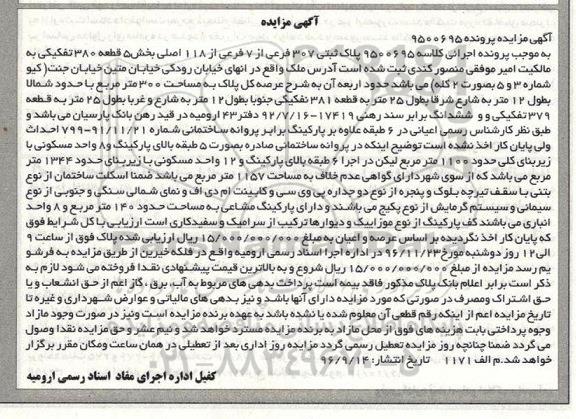 آگهی مزایده
آگهی مزایده پرونده ۹۵۰۰۶۹۵
به موجب پرونده اجرائی کلاسه ۹۵۰۰۶۹۵ پلاک ثبتی ۳۰۷ فرعی از ۷ فرعی از ۱۱۸ اصلی بخش۵ قطعه ۳۸۰ تفکیکی به
مالکیت امیر موفقی منصور کندی ثبت شده است آدرس ملک واقع در انهای خیابان رودکی خیابان متین خیابان جنت( کیو
شماره ۳ و ۵ بصورت ۲ کله) می باشد حدود اربعه آن به شرح عرصه کل پلاک به مساحت ۳۰۰ متر مربع با حدود شمالا
بطول ۱۲ متر به شارع شرقا بطول ۲۵ متر به قطعه ۳۸۱ تفکیکی جنوبا بطول ۱۲ متر به شارع و غربا بطول ۲۵ متر به قطعه
۳۷۹ تفکیکی و و ششدانگ برابر سند رهنی ۱۷۴۱۹-۹۲/۷/۱۶ دفتر۴۳ ارومیه در قید رهن بانک پارسیان می باشد و
طبق نظر کارشناس رسمی اعیانی در ۶ طبقه علاوه بر پارکینگ برابر پروانه ساختمانی شماره ۷۹۹-۹۱/۱۱/۲۱ احداث
ولی پایان کار اخذ نشده است توضیح اینکه در پروانه ساختمانی صادره بصورت ۵ طبقه بالای پارکینگ و ۸ واحد مسکونی با
زیربنای کلی حدود ۱۱۹۰ متر مربع لیکن در اجرا ۶ طبقه بالای پارکینگ و ۱۲ واحد مسکونی با زیربنای حدود ۱۳۴۴ متر
مربع می باشد که از سوی شهرداری گواهی عدم خلاف به مساحت ۱۱۵۷ متر مربع می باشد ضمنا اسکلت ساختمان از نوع
بتنی با سقف تیرچه بلوک و پنجره از نوع دو جداره یو وی سی و کابینت ام دی اف و نمای شمالی سنگی و جنوبی از نوع
سیمانی و سیستم گرمایش از نوع پکیج می باشند و دارای پارکینگ مشاعی به مساحت حدود ۱۴۰ متر مربع و ۸ واحد
انباری می باشند کف پارکینگ از نوع موزاییک و دیوارها ترکیب از سرامیک و سفیدکاری است ارزیابی با کل شرایط فوق
که پایان کار اخذ نگردیده بر اساس عرصه و اعیان به مبلغ ۱۵/۰۰۰/۰۰۰/۰۰۰ ریال ارزیابی شده پلاک فوق از ساعت ۹
الی۱۲ روز دوشنبه مورخ۹۶/۱۱/۲۳ در اداره اجرا اسناد رسمی ارومیه واقع در فلکه خیرین از طریق مزایده به فرشو
یم رسد مزایده از مبلغ ۱۵/۰۰۰/۰۰۰/۰۰۰ ریال شروع و به بالاترین قیمت پیشنهادی نقدا فروخته می شود لازم به
ذکر است بر ابر اعلام بانک پلاک مذکور فاقد بیمه است پرداخت بدهی های مربوط به آب، برق، گاز اعم از حق انشعاب و یا
حق اشتراک ومصرف در صورتی که مورد مزایده دارای آنها باشد و نیز بدهی های مالیاتی و عوارض شهرداری و غیره تا
تاریخ مزایده اعم از اینکه رقم قطعی آن معلوم شده یا نشده باشد به عهده برنده مزایده است ونیز در صورت وجود مازاد
وجوه پرداختی بابت هزینه های فوق از محل مازاد به برنده مزایده مسترد خواهد شد و نیم عشر و حق مزایده نقدا وصول
می گردد ضمنا چنانچه روز مزایده تعطیل رسمی گردد مزایده روز اداری بعد از تعطیلی در همان ساعت ومکان مقرر برگزار
خواهد شد.م الف ۱۱۷۱ تاریخ انتشار: ۹۶/۹/۱۴
کفیل اداره اجرای مفاد اسناد رسمی ارومیه